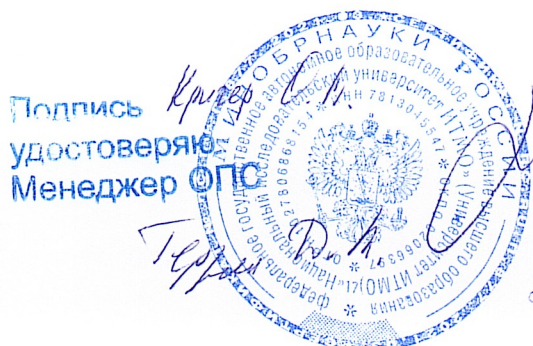 Подпись Кригер О. М.
удостоверяю
Менеджер ОПС
МИНОБРНАУКИ РОССИИ
федеральное государственное автономное образовательное учреждение высшего образования
«Национальный исследовательский университет ИТМО» (Университет ИТМО)
ИНН 7813045547